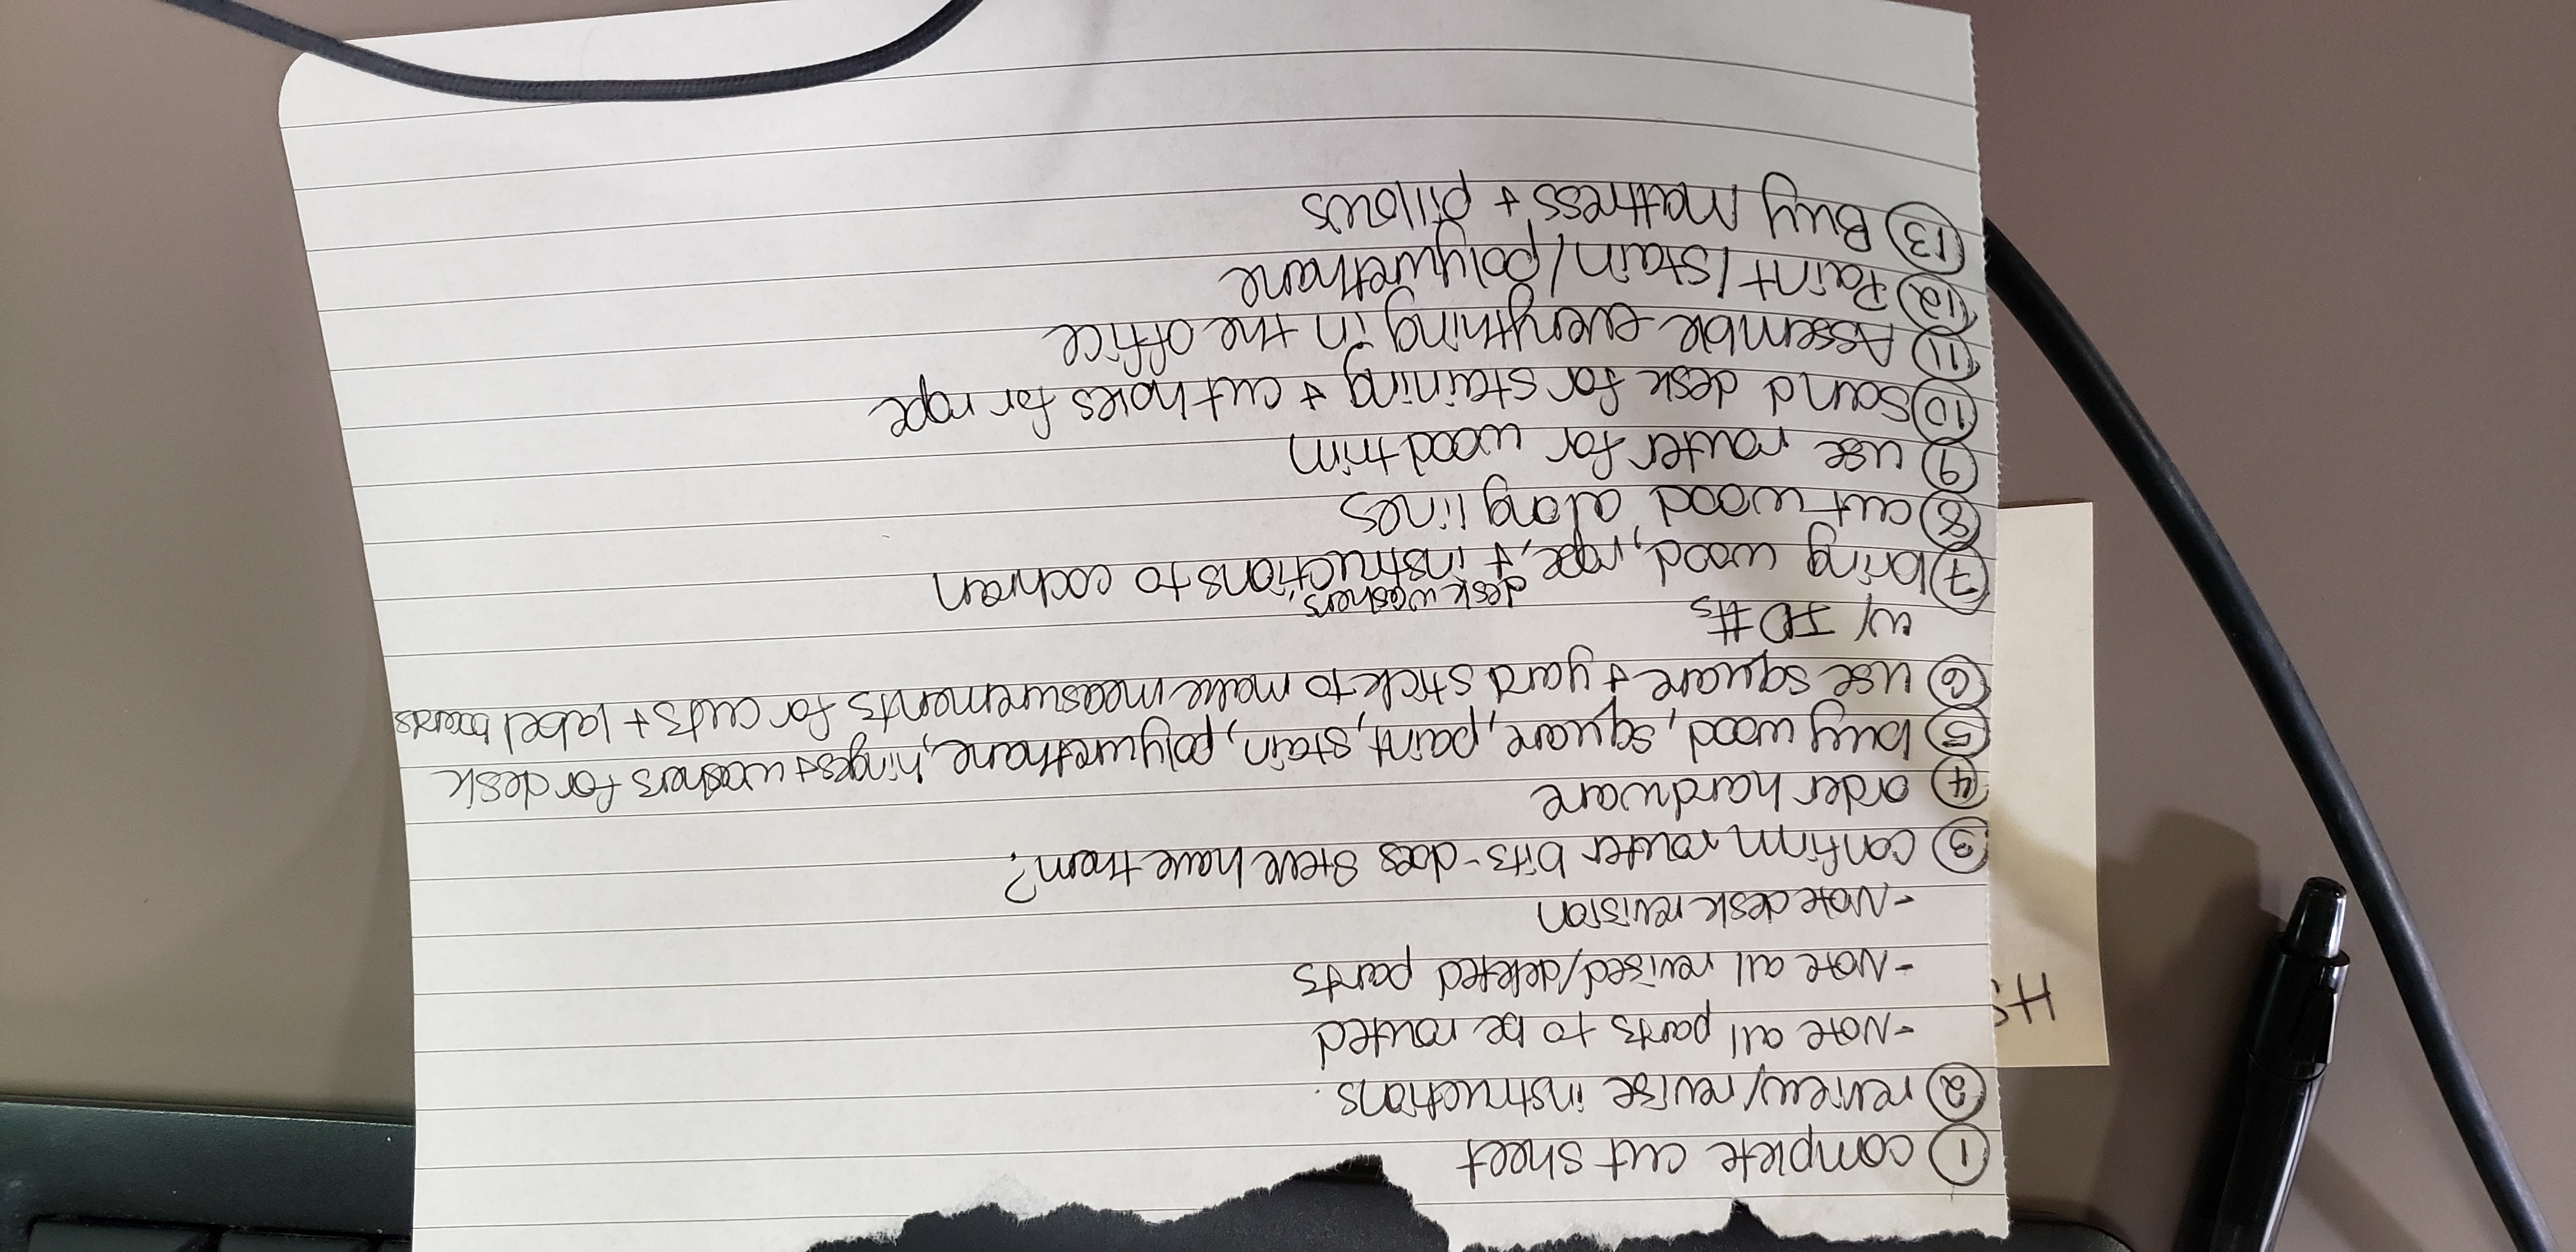 ① complete cut sheet
② review/revise instructions.
- Note all parts to be routed
- Note all revised/deleted parts
- Note desk revision
③ confirm router bits - does Steve have them?
④ order hardware
⑤ buy wood, square, paint, stain, polyurethane, hinges + washers for desk
⑥ use square + yard stick to make measurements for cuts + label boards
w/ ID #s
desk washers,
⑦ bring wood, rope, + instructions to cochran
⑧ cut wood along lines
⑨ use router for wood trim
⑩ Sand desk for staining + cut holes for rope
⑪ Assemble everything in the office
⑫ Paint/stain/polyurethane
⑬ Buy mattress + pillows